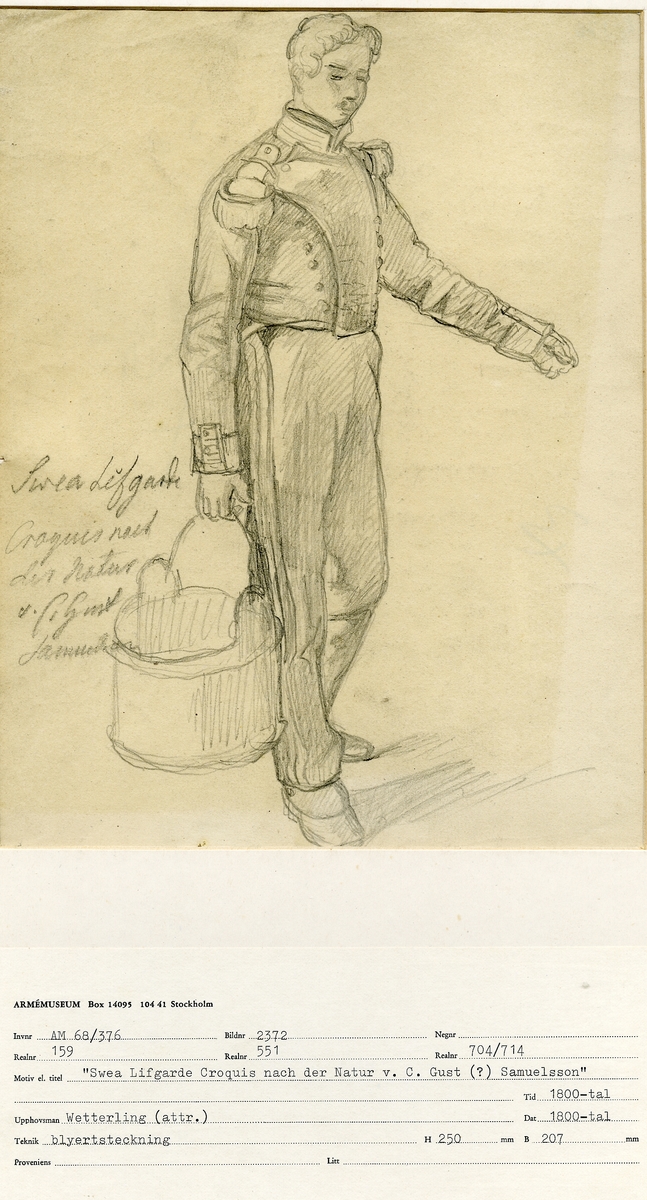 Swea Lifgarde
Croquis nach
der Natur
v. C. Gust
Samuelsson
ARMÉMUSEUM Box 14095 104 41 Stockholm
Invnr AM 68/376 Bildnr 2372 Negnr
Realnr 159 Realnr 551 Realnr 704/714
Motiv el. titel "Swea Lifgarde Croquis nach der Natur v. C. Gust (?) Samuelsson"
Tid 1800-tal
Upphovsman Wetterling (attr.) Dat 1800-tal
Teknik blyertsteckning H 250 mm B 207 mm
Proveniens Litt